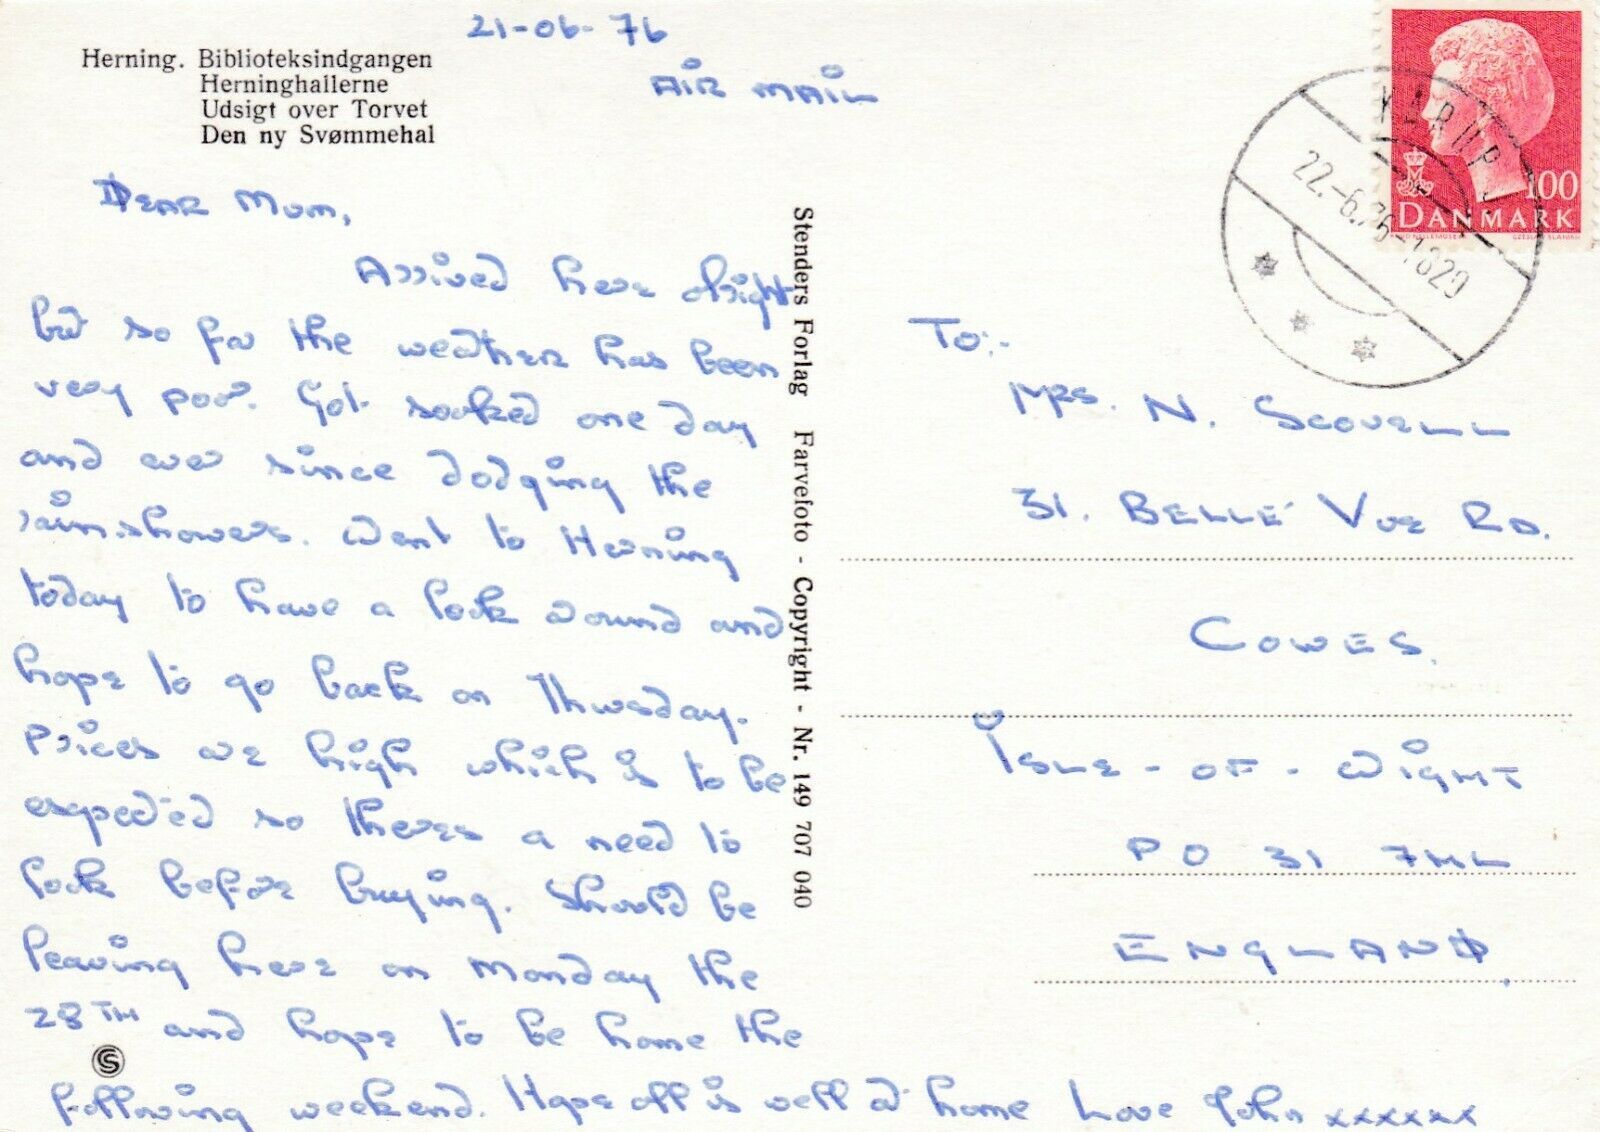 21-06-76
AIR MAIL
Herning. Biblioteksindgangen
Herninghallerne
Udsigt over Torvet
Den ny Svømmehal
Dear Mum,
Arrived here alright
but so far the weather has been
very poor. Got soaked one day
and ever since dodging the
rainshowers. Went to Herning
today to have a look around and
hope to go back on Thursday.
Prices are high which is to be
expected so theres a need to
look before buying. Should be
leaving here on Monday the
28TH and hope to be home the
following weekend. Hope all is well at home Love John xxxxxx
S
Stenders Forlag Farvefoto - Copyright - Nr. 149 707 040
KARUP J
22.-6.76-1820
100
DANMARK
CZESLAW SLANIA
To:-
Mrs. N. Scovell
31. Belle Vue Rd.
Cowes.
Isle-of-Wight
PO 31 7HL
England.